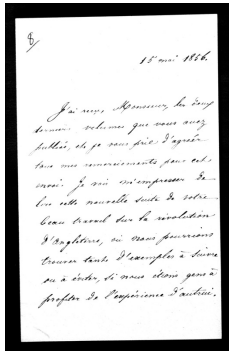 8
15 mai 1856.
J'ai reçu, Monsieur, les deux
derniers volumes que vous avez
publiés, et je vous prie d'agréer
tous mes remerciements pour cet
envoi. Je vais m'empresser de
lire cette nouvelle suite de votre
beau travail sur la révolution
d'Angleterre, où nous pourrions
trouver tant d'exemples à suivre
ou à éviter, si nous étions gens à
profiter de l'expérience d'autrui.